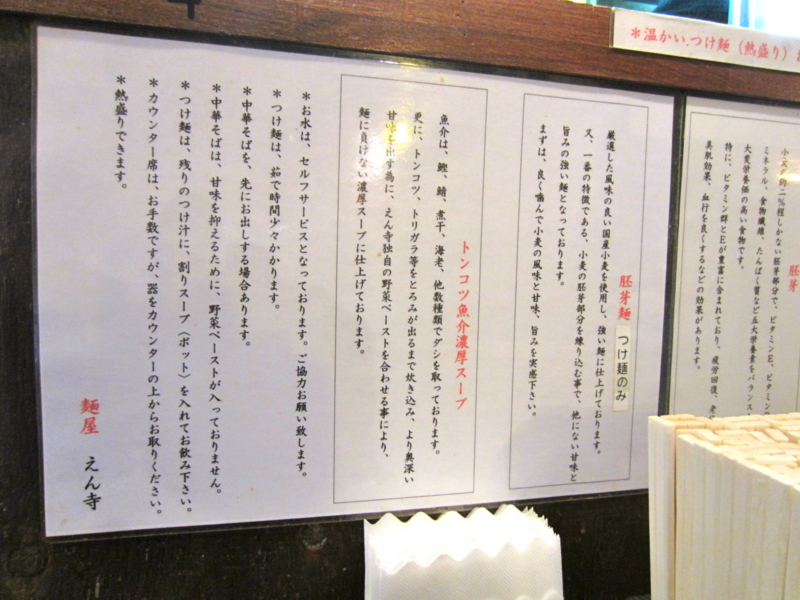 *温かい、つけ麺（熱盛り）
胚芽
ミネラル、食物繊維、たんぱく質など五大栄養素をバランス
大変栄養価の高い食物です。
特に、ビタミン群とEが豊富に含まれており、疲労回復、老
美肌効果、血行を良くするなどの効果があります。
胚芽麺 つけ麺のみ
厳選した風味の良い国産小麦を使用し、強い麺に仕上げております。
又、一番の特徴である、小麦の胚芽部分を練り込む事で、他にない甘味と
旨みの強い麺となっております。
まずは、良く噛んで小麦の風味と甘味、旨みを実感下さい。
トンコツ魚介濃厚スープ
魚介は、鰹、鯖、煮干、海老、他数種類でダシを取っております。
更に、トンコツ、トリガラ等をとろみが出るまで炊き込み、より奥深い
甘味を出す為に、えん寺独自の野菜ペーストを合わせる事により、
麺に負けない濃厚スープに仕上げております。
*お水は、セルフサービスとなっております。ご協力お願い致します。
*つけ麺は、茹で時間少々かかります。
*中華そばを、先にお出しする場合あります。
*中華そばは、甘味を抑えるために、野菜ペーストが入っておりません。
*つけ麺は、残りのつけ汁に、割りスープ（ポット）を入れてお飲み下さい。
*カウンター席は、お手数ですが、器をカウンターの上からお取りください。
*熱盛りできます。
麺屋 えん寺